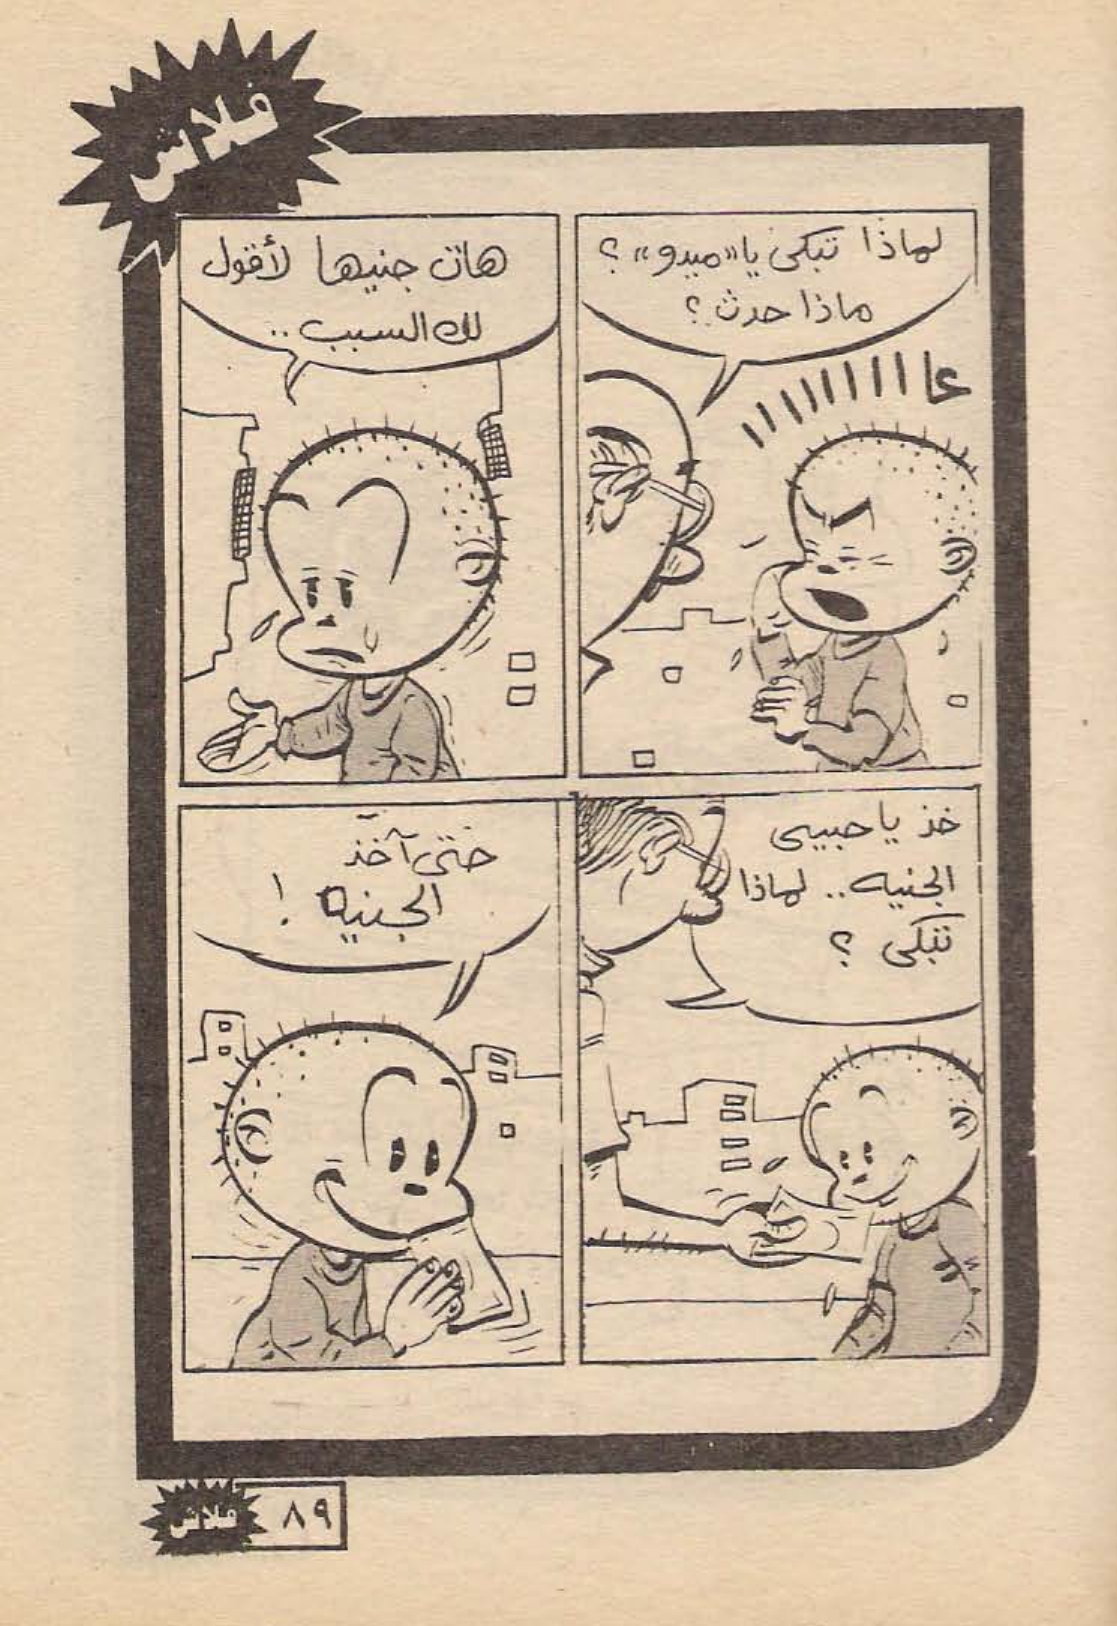 فلاش
لماذا تبكى يا «ميدو» ؟
ماذا حدث ؟
عاااااااا
هات جنيها لأقول
لك السبب ..
خذ يا حبيبى
الجنيه .. لماذا
تبكى ؟
حتى آخذ
الجنيه !
فلاش
٨٩